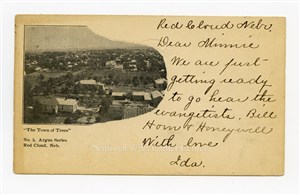 Red Cloud Nebr.
Dear Minnie
We are just
getting ready
to go hear the
evangelists, Bill
Horn & Honeywell
With love
Ida.
"The Town of Trees"
No. 2. Argus Series
Red Cloud, Neb.